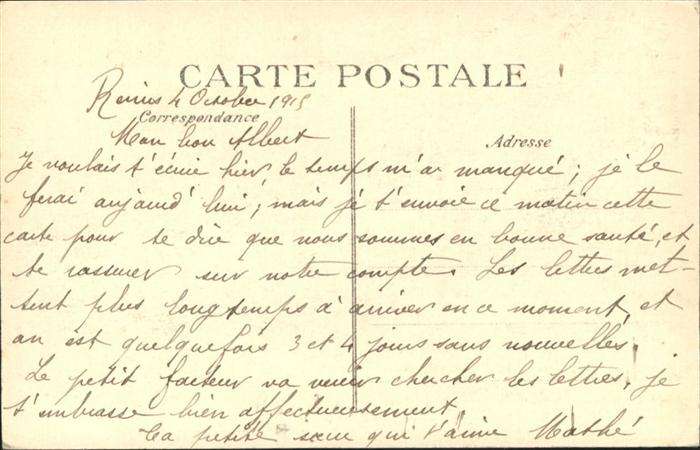 CARTE POSTALE
Reims 4 Octobre 1915
Correspondance
Adresse
Mon bon Albert
Je voulais t'écrire hier le temps m'a manqué ; je le
ferai aujourd'hui ; mais je t'envoie ce matin cette
carte pour te dire que nous sommes en bonne santé, et
te rassurer sur notre compte. Les lettres met-
tent plus longtemps à arriver en ce moment, et
on est quelquefois 3 et 4 jours sans nouvelles.
Le petit facteur va venir chercher les lettres, je
t'embrasse bien affectueusement
Ta petite sœur qui t'aime Mathé